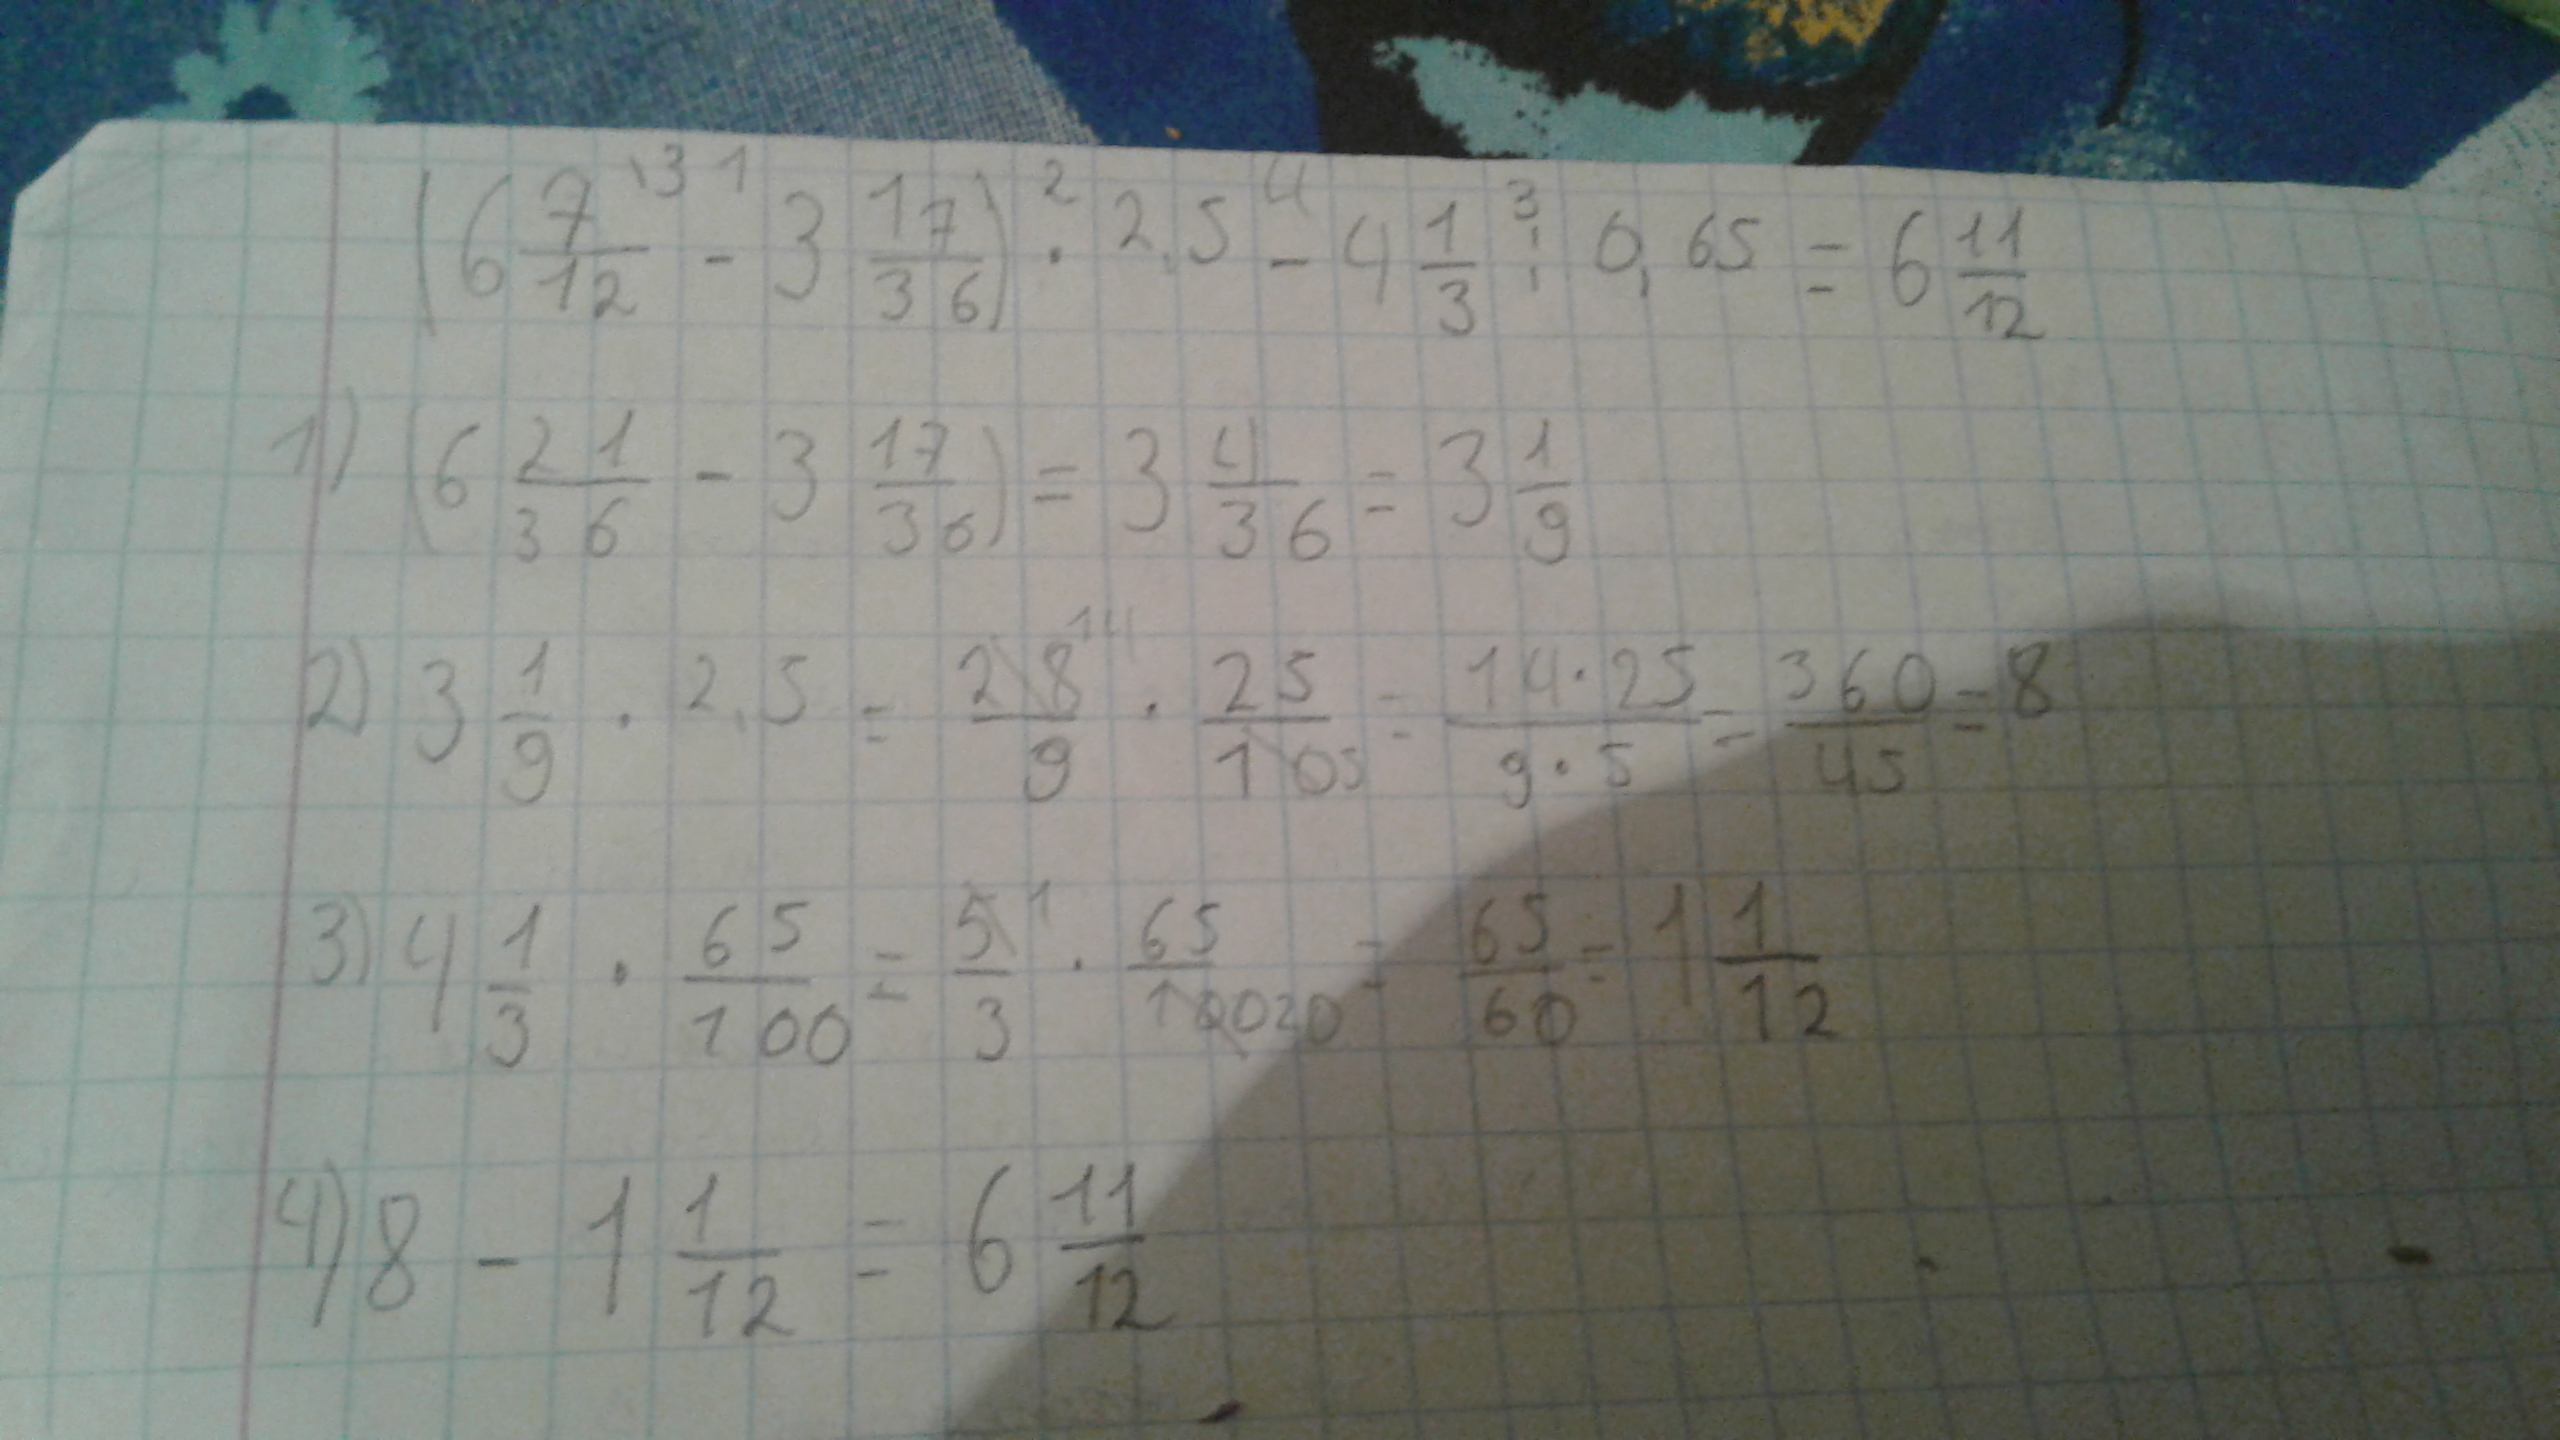 (6 7/12 \3 - 3 17/36) · 2,5 - 4 1/3 : 0,65 = 6 11/12
1) (6 21/36 - 3 17/36) = 3 4/36 = 3 1/9
2) 3 1/9 · 2,5 = 28 14/9 · 25/10 5 = 14·25/9·5 = 360/45 = 8
3) 4 1/3 · 65/100 = 5 1/3 · 65/100 20 = 65/60 = 1 1/12
4) 8 - 1 1/12 = 6 11/12